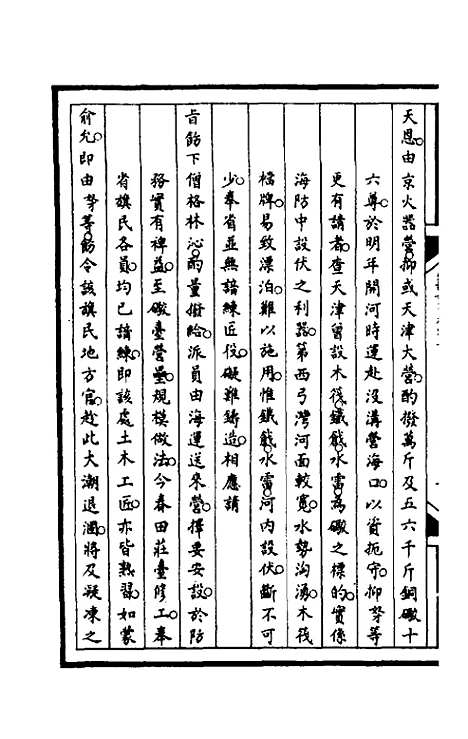 天恩由京火器營。抑或天津大營。酌撥萬斤及五六千斤銅礮十
六尊。於明年開河時運赴沒溝營海口。以資扼守。抑努等
更有請者。查天津曾設木筏。鐵戧。水雷。為礮之標的。實係
海防中設伏之利器。第西弓灣河面較寬。水勢洶湧。木筏
檔牌。易致漂泊。難以施用。惟鐵戧。水雷。河內設伏。斷不可
少。奉省並無諳練匠役。礙難鑄造。相應請
旨飭下僧格林沁。酌量撥給。派員由海運送來營。擇要安設。於防
務實有裨益。至礮臺營壘。規模做法。今春田莊臺修工。奉
省旗民各員。均已諳練。即該處土木工匠。亦皆熟習。如蒙
俞允。即由努等。飭令該旗民地方官。趁此大潮退涸。將及凝凍之